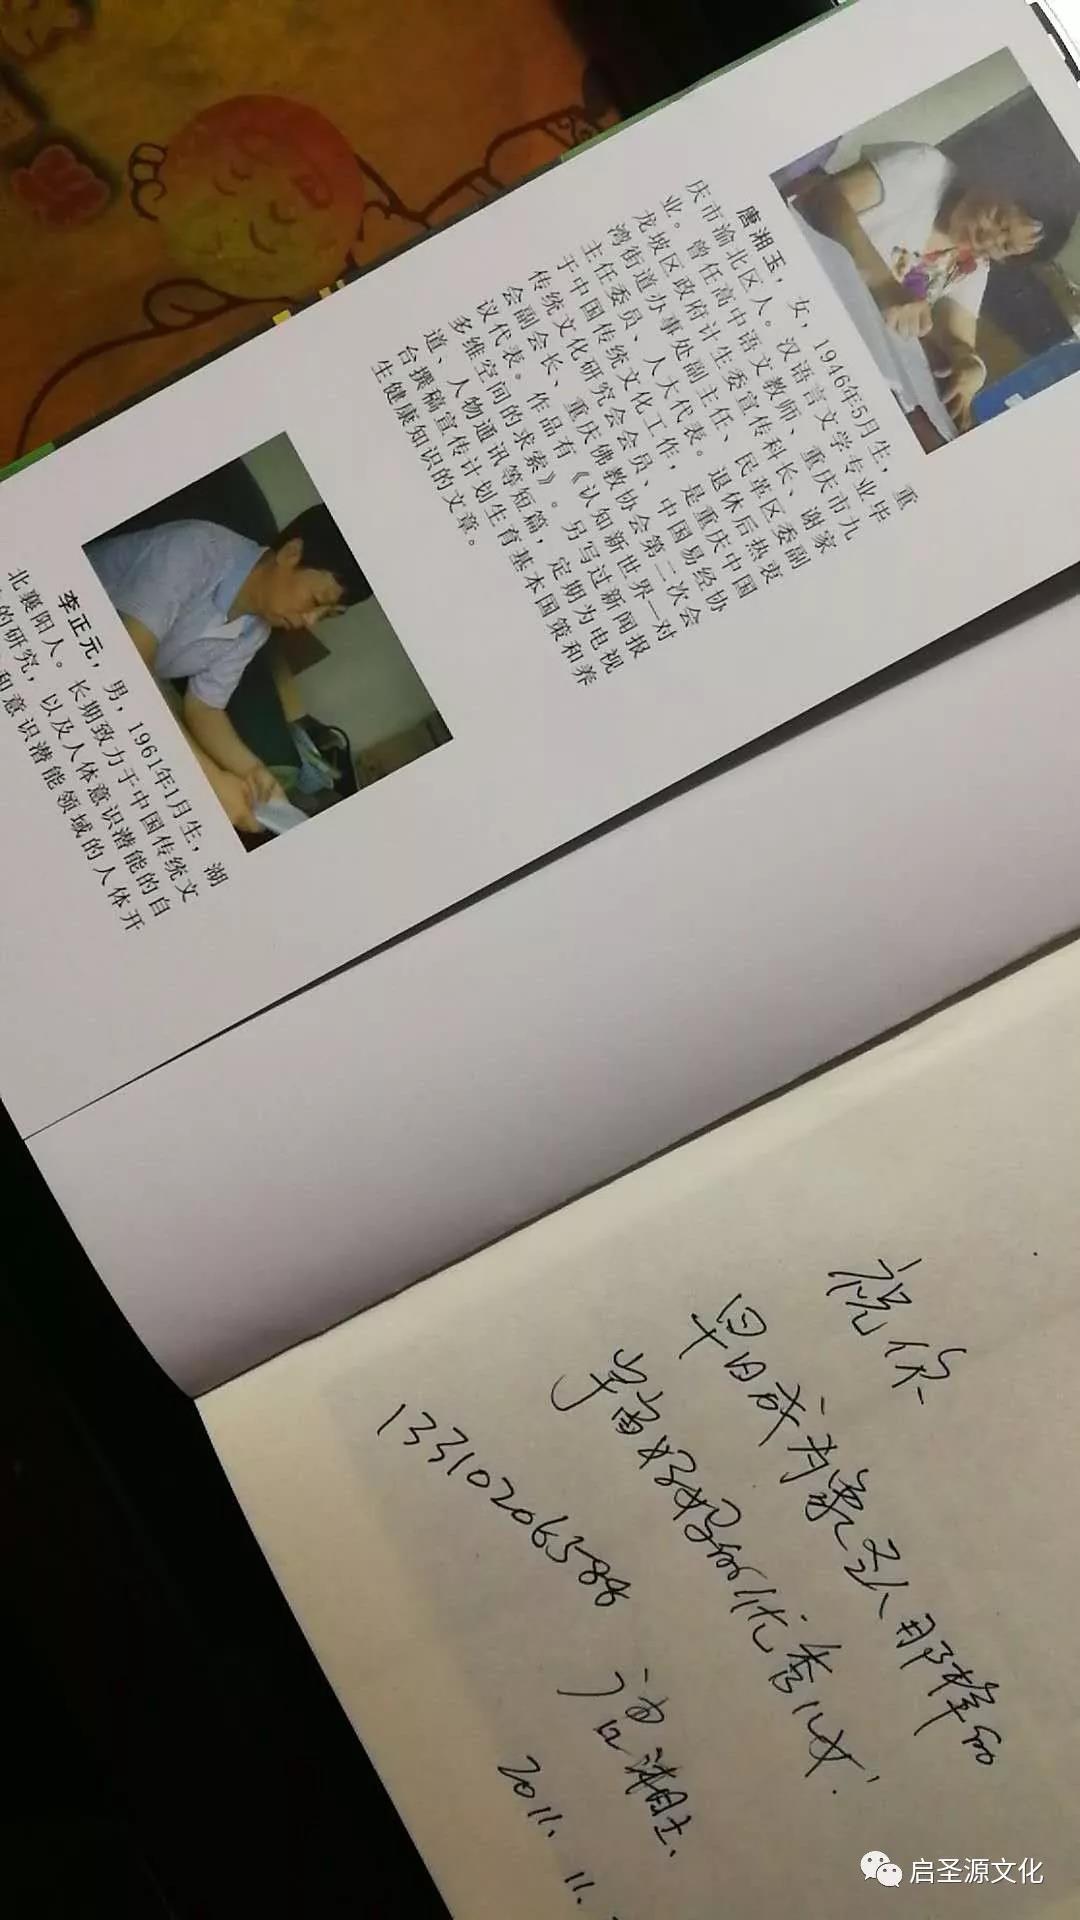 唐湘玉，女，1946年5月生，重
庆市渝北区人。汉语言文学专业毕
业。曾任高中语文教师、重庆市九
龙坡区政府计生委宣传科长、谢家
湾街道办事处副主任、民革区委副
主任委员、人大代表。退休后热衷
于中国传统文化工作，是重庆中国
传统文化研究会会员、中国易经协
会副会长、重庆佛教协会第二次会
议代表。作品有《认知新世界—对
多维空间的求索》。另写过新闻报
道、人物通讯等短篇，定期为电视
台撰稿宣传计划生育基本国策和养
生健康知识的文章。
李正元，男，1961年1月生，湖
北襄阳人。长期致力于中国传统文
的研究，以及人体意识潜能的自
和意识潜能领域的人体开
祝你
早日成为象圣人那样的
宇宙妈妈的优秀儿女！
13310206588
唐湘玉
2011.11.
启圣源文化